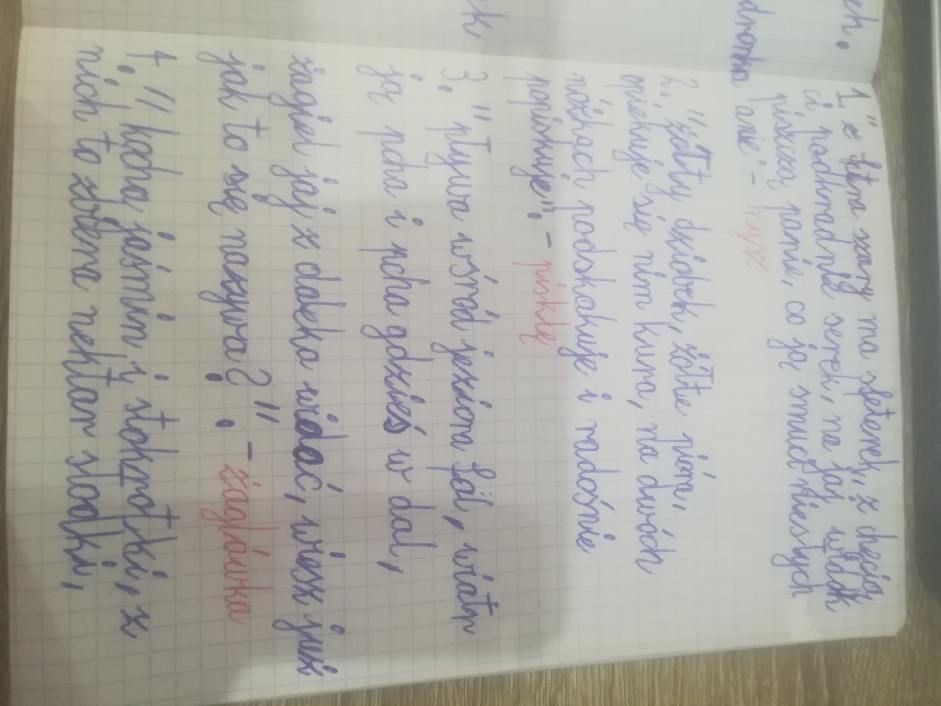 ch.
ek
1" futra szary ma z chęcią
ci podkradnie serek, na jej widok
piszczą panie, co ją
anie" - mysz
2. "żółty dzióbek, żółte pióra,
opiekuje się nim kura, na dwóch
nóżkach podskakuje i radośnie
popiskuje". - pisklę
3. "pływa wśród jeziora fal, wiatr
ją pcha i pcha gdzieś w dal,
żagiel jej z daleka widać, wiesz już
jak to się nazywa?". - żaglówka
4. "kocha jaśmin i stokrotki, z
nich to zbiera nektar słodki,